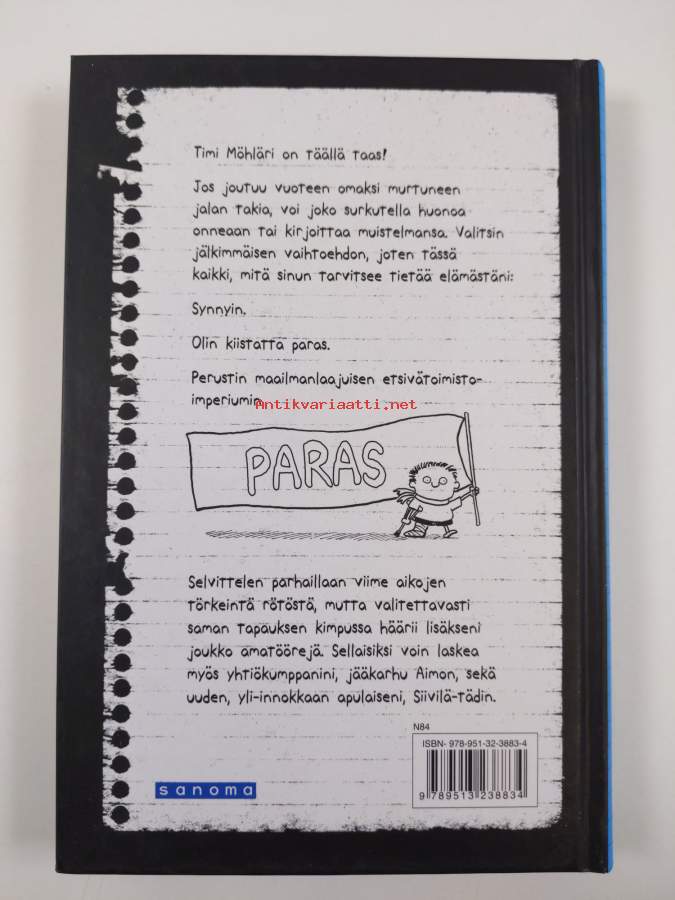 Timi Möhläri on täällä taas!
Jos joutuu vuoteen omaksi murtuneen
jalan takia, voi joko surkutella huonoa
onneaan tai kirjoittaa muistelmansa. Valitsin
jälkimmäisen vaihtoehdon, joten tässä
kaikki, mitä sinun tarvitsee tietää elämästäni:
Synnyin.
Olin kiistatta paras.
Perustin maailmanlaajuisen etsivätoimisto-
imperiumin.
Antikvariaatti.net
PARAS
Selvittelen parhaillaan viime aikojen
törkeintä rötöstä, mutta valitettavasti
saman tapauksen kimpussa häärii lisäkseni
joukko amatöörejä. Sellaisiksi voin laskea
myös yhtiökumppanini, jääkarhu Aimon, sekä
uuden, yli-innokkaan apulaiseni, Siivilä-tädin.
N84
ISBN- 978-951-32-3883-4
9 789513 238834
sanoma